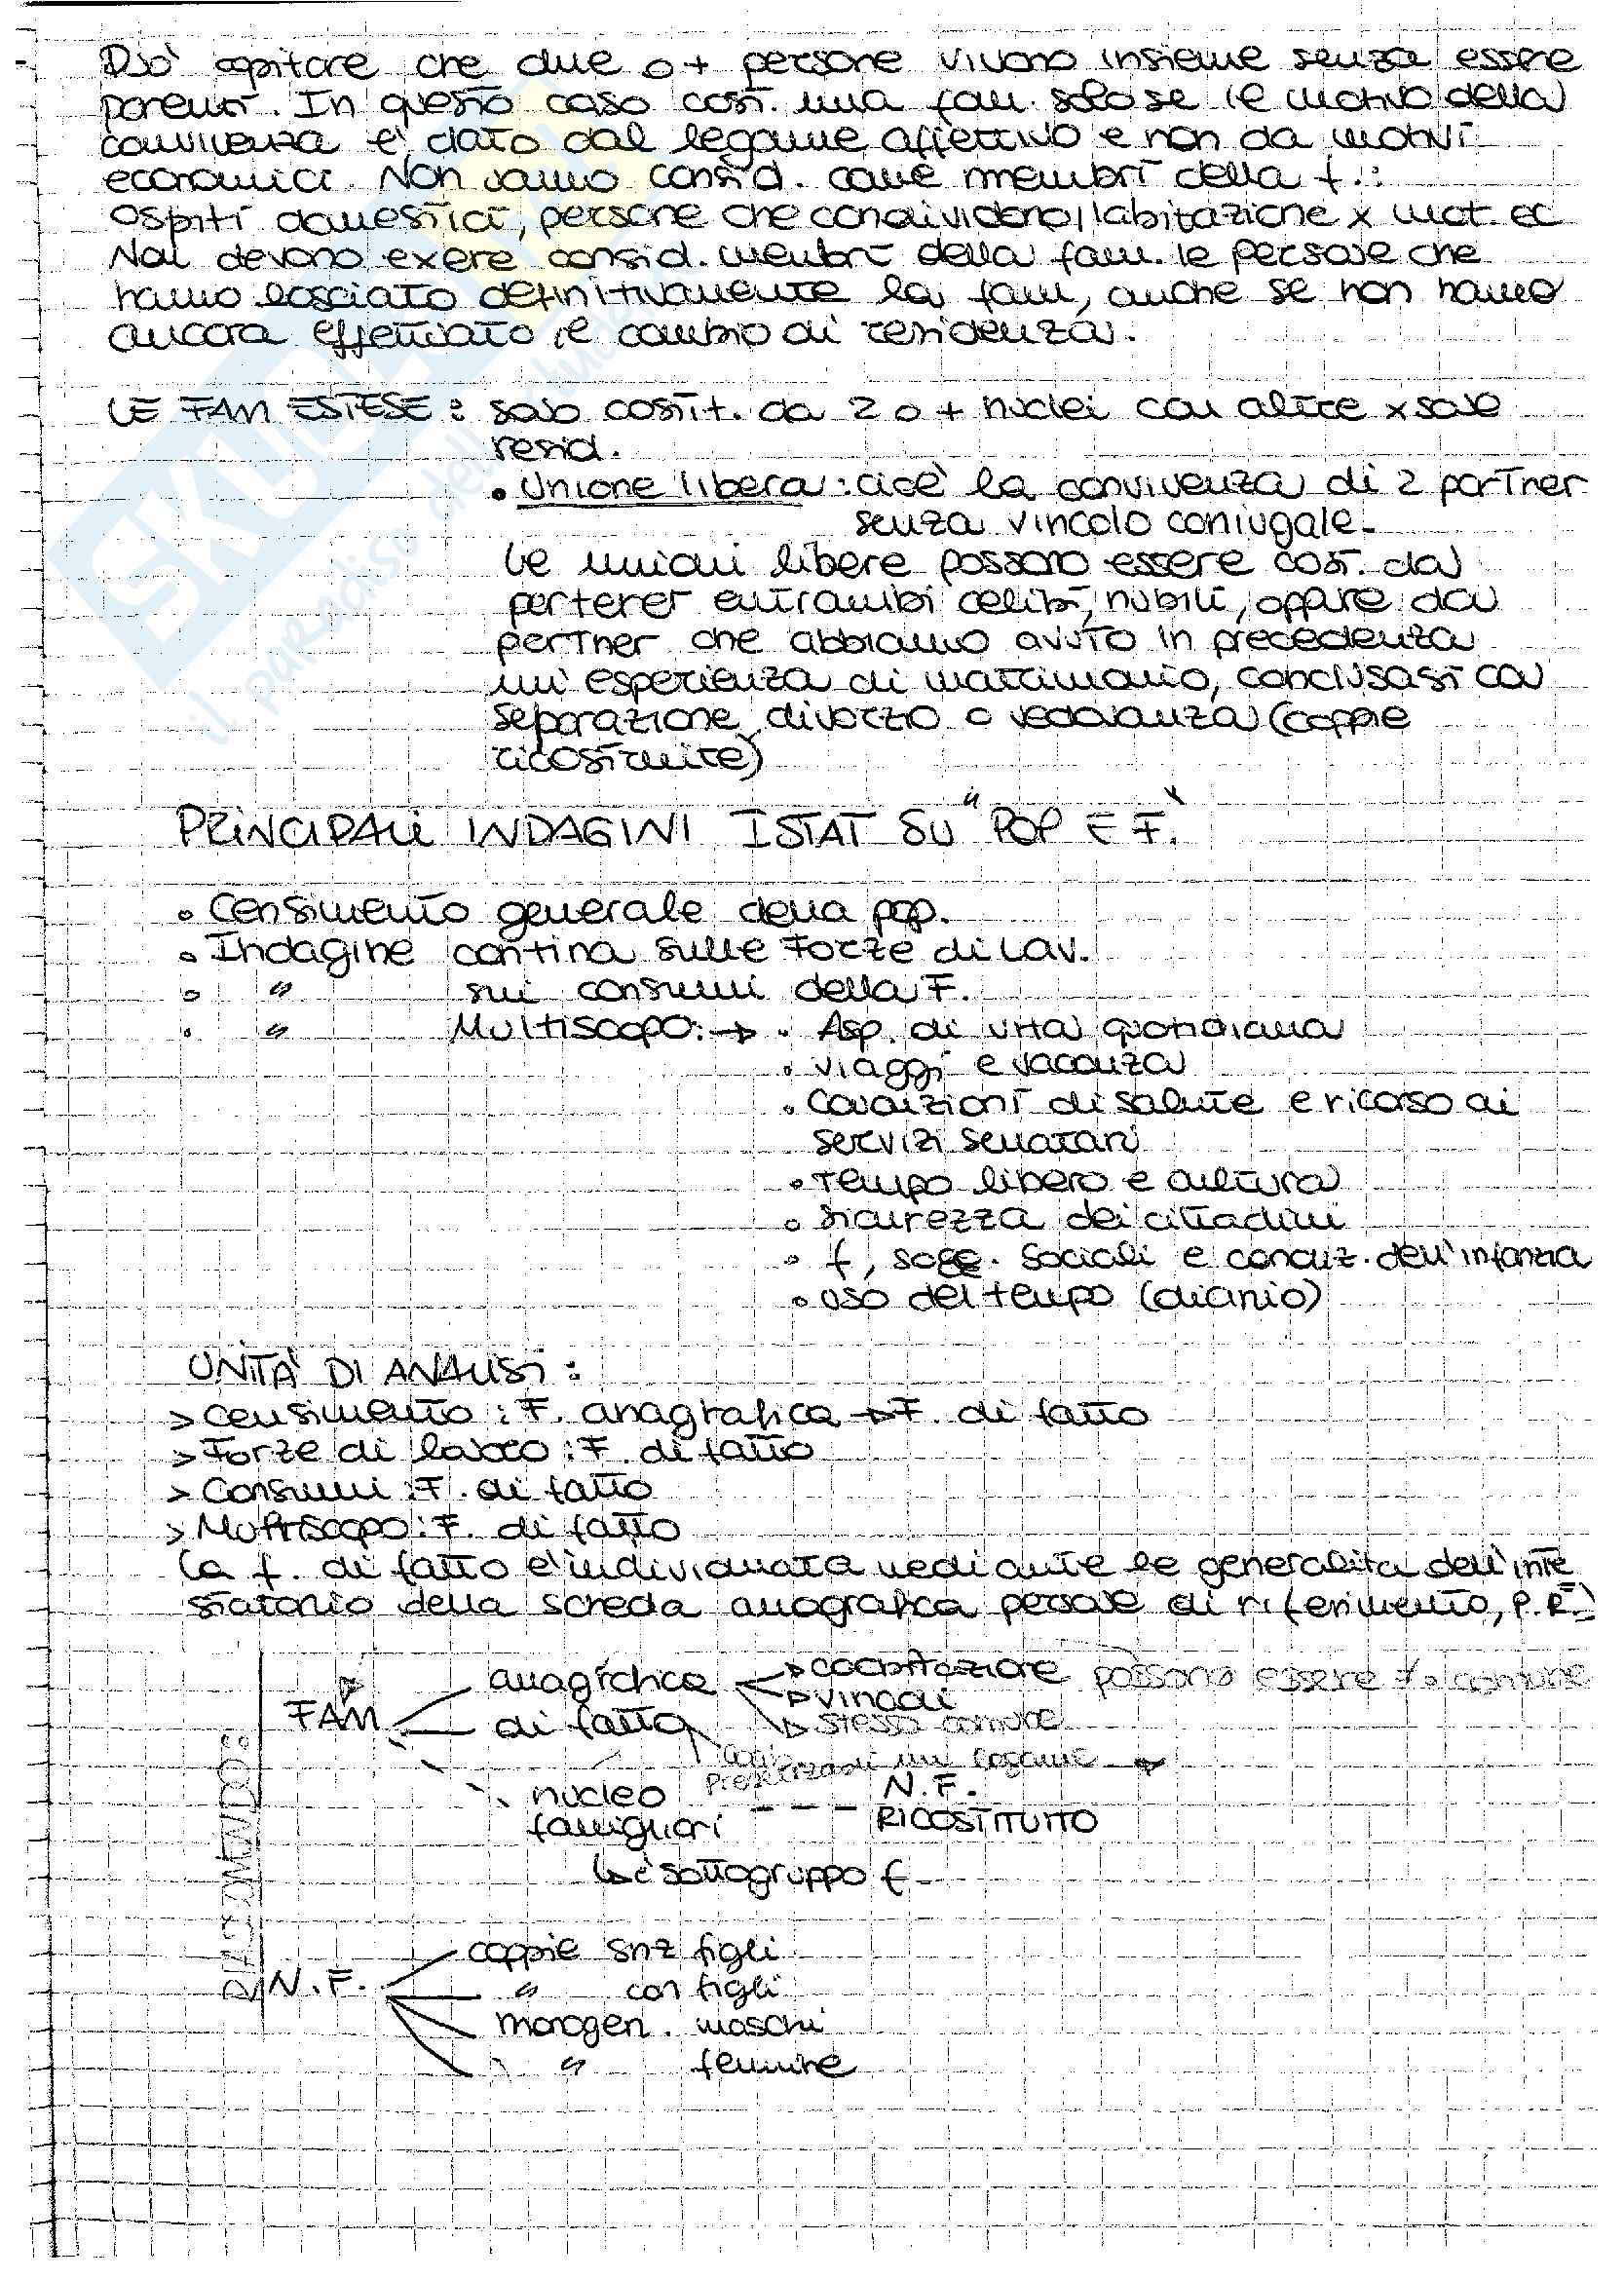 Può capitare che due o + persone vivano insieme senza essere
parenti. In questo caso cost. una fam. solo se il motivo della
convivenza è dato dal legame affettivo e non da motivi
economici. Non vanno consid. come membri della f.:
ospiti domestici, persone che condividono l'abitazione x mot. ec
Non devono exere consid. membri della fam. le persone che
hanno lasciato definitivamente la fam, anche se non hanno
ancora effettuato il cambio di residenza.
LE FAM ESTESE: sono costit. da 2 o + nuclei con altre xsone
resid.
• Unione libera: cioè la convivenza di 2 partner
senza vincolo coniugale.
Le unioni libere possono essere cost. da
perterer entrambi celibi, nubili, oppure da
pertner che abbiamo avuto in precedenza
un'esperienza di matrimonio, conclusasi con
separazione, divorzio o vedovanza (coppie
ricostruite)
PRINCIPALI INDAGINI ISTAT SU "POP E F."
• Censimento generale della pop.
• Indagine contina sulle Forze di Lav.
• " sui consumi della F.
• " Multiscopo: → • Asp. di vita quotidiana
• viaggi e vacanza
• Condizioni di salute e ricorso ai
servizi
• Tempo libero e cultura
• Sicurezza dei cittadini
• f, sogg. sociali e condiz. dell'infanzia
• uso del tempo (diario)
UNITÀ DI ANALISI:
> Censimento: F. anagrafica → F. di fatto
> Forze di lavoro: F. di fatto
> Consumi: F. di fatto
> Multiscopo: F. di fatto
La f. di fatto è individuata mediante le generalità dell'inte
statario della scheda anagrafica persone di riferimento, P.R.)
FAM
anagrafica
→ coabitazione possono essere comune
→ vincoli
→ stesso comune
di fatto
un legame →
nucleo
famigliari --- N.F.
RICOSTITUITO
↳ è sottogruppo f
N.F.
coppie snz figli
" con figli
monogen. maschi
" femmine